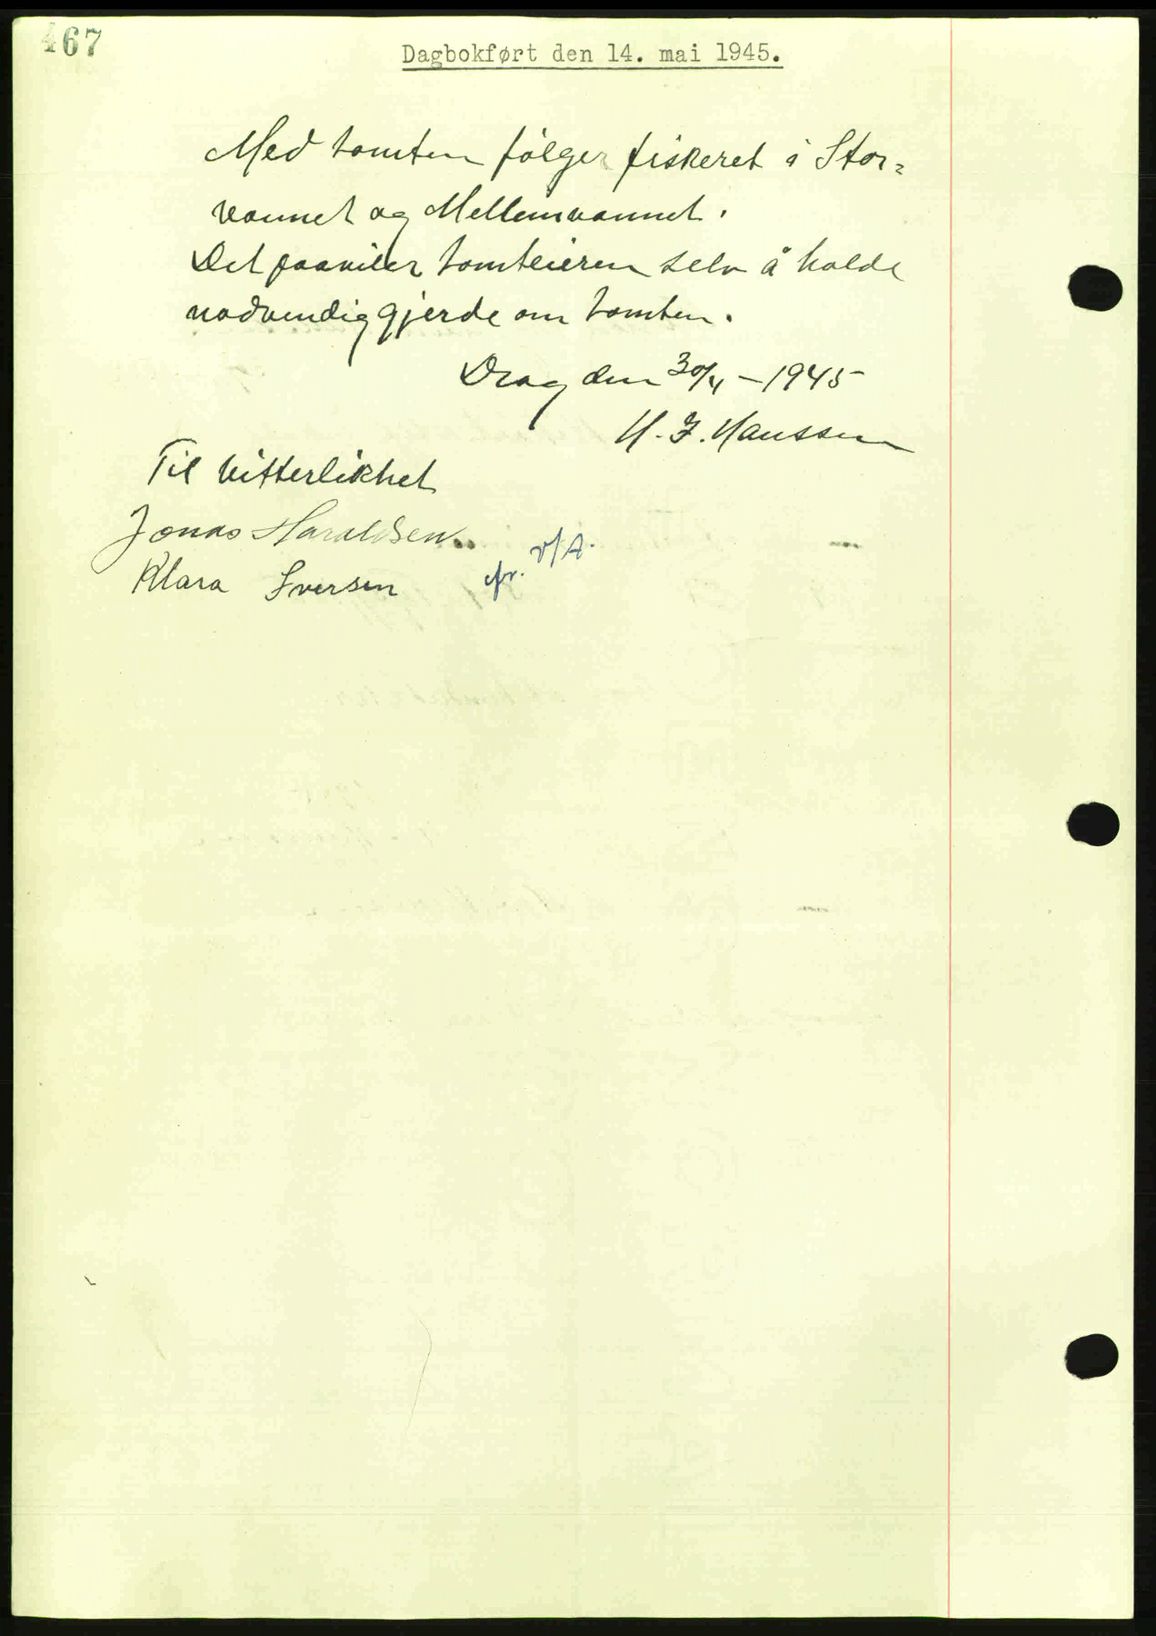 467
Dagbokført den 14. mai 1945.
Med tomten følger fiskeret i Stor=
vannet og Mellemvannet.
Det paaviler tomteieren selv å holde
nødvendig gjerde om tomten.
Drag den 30/4 - 1945
H. J. Hanssen
Til vitterlikhet
Jonas Haraldsen
v/A.
Klara Iversen cfr.